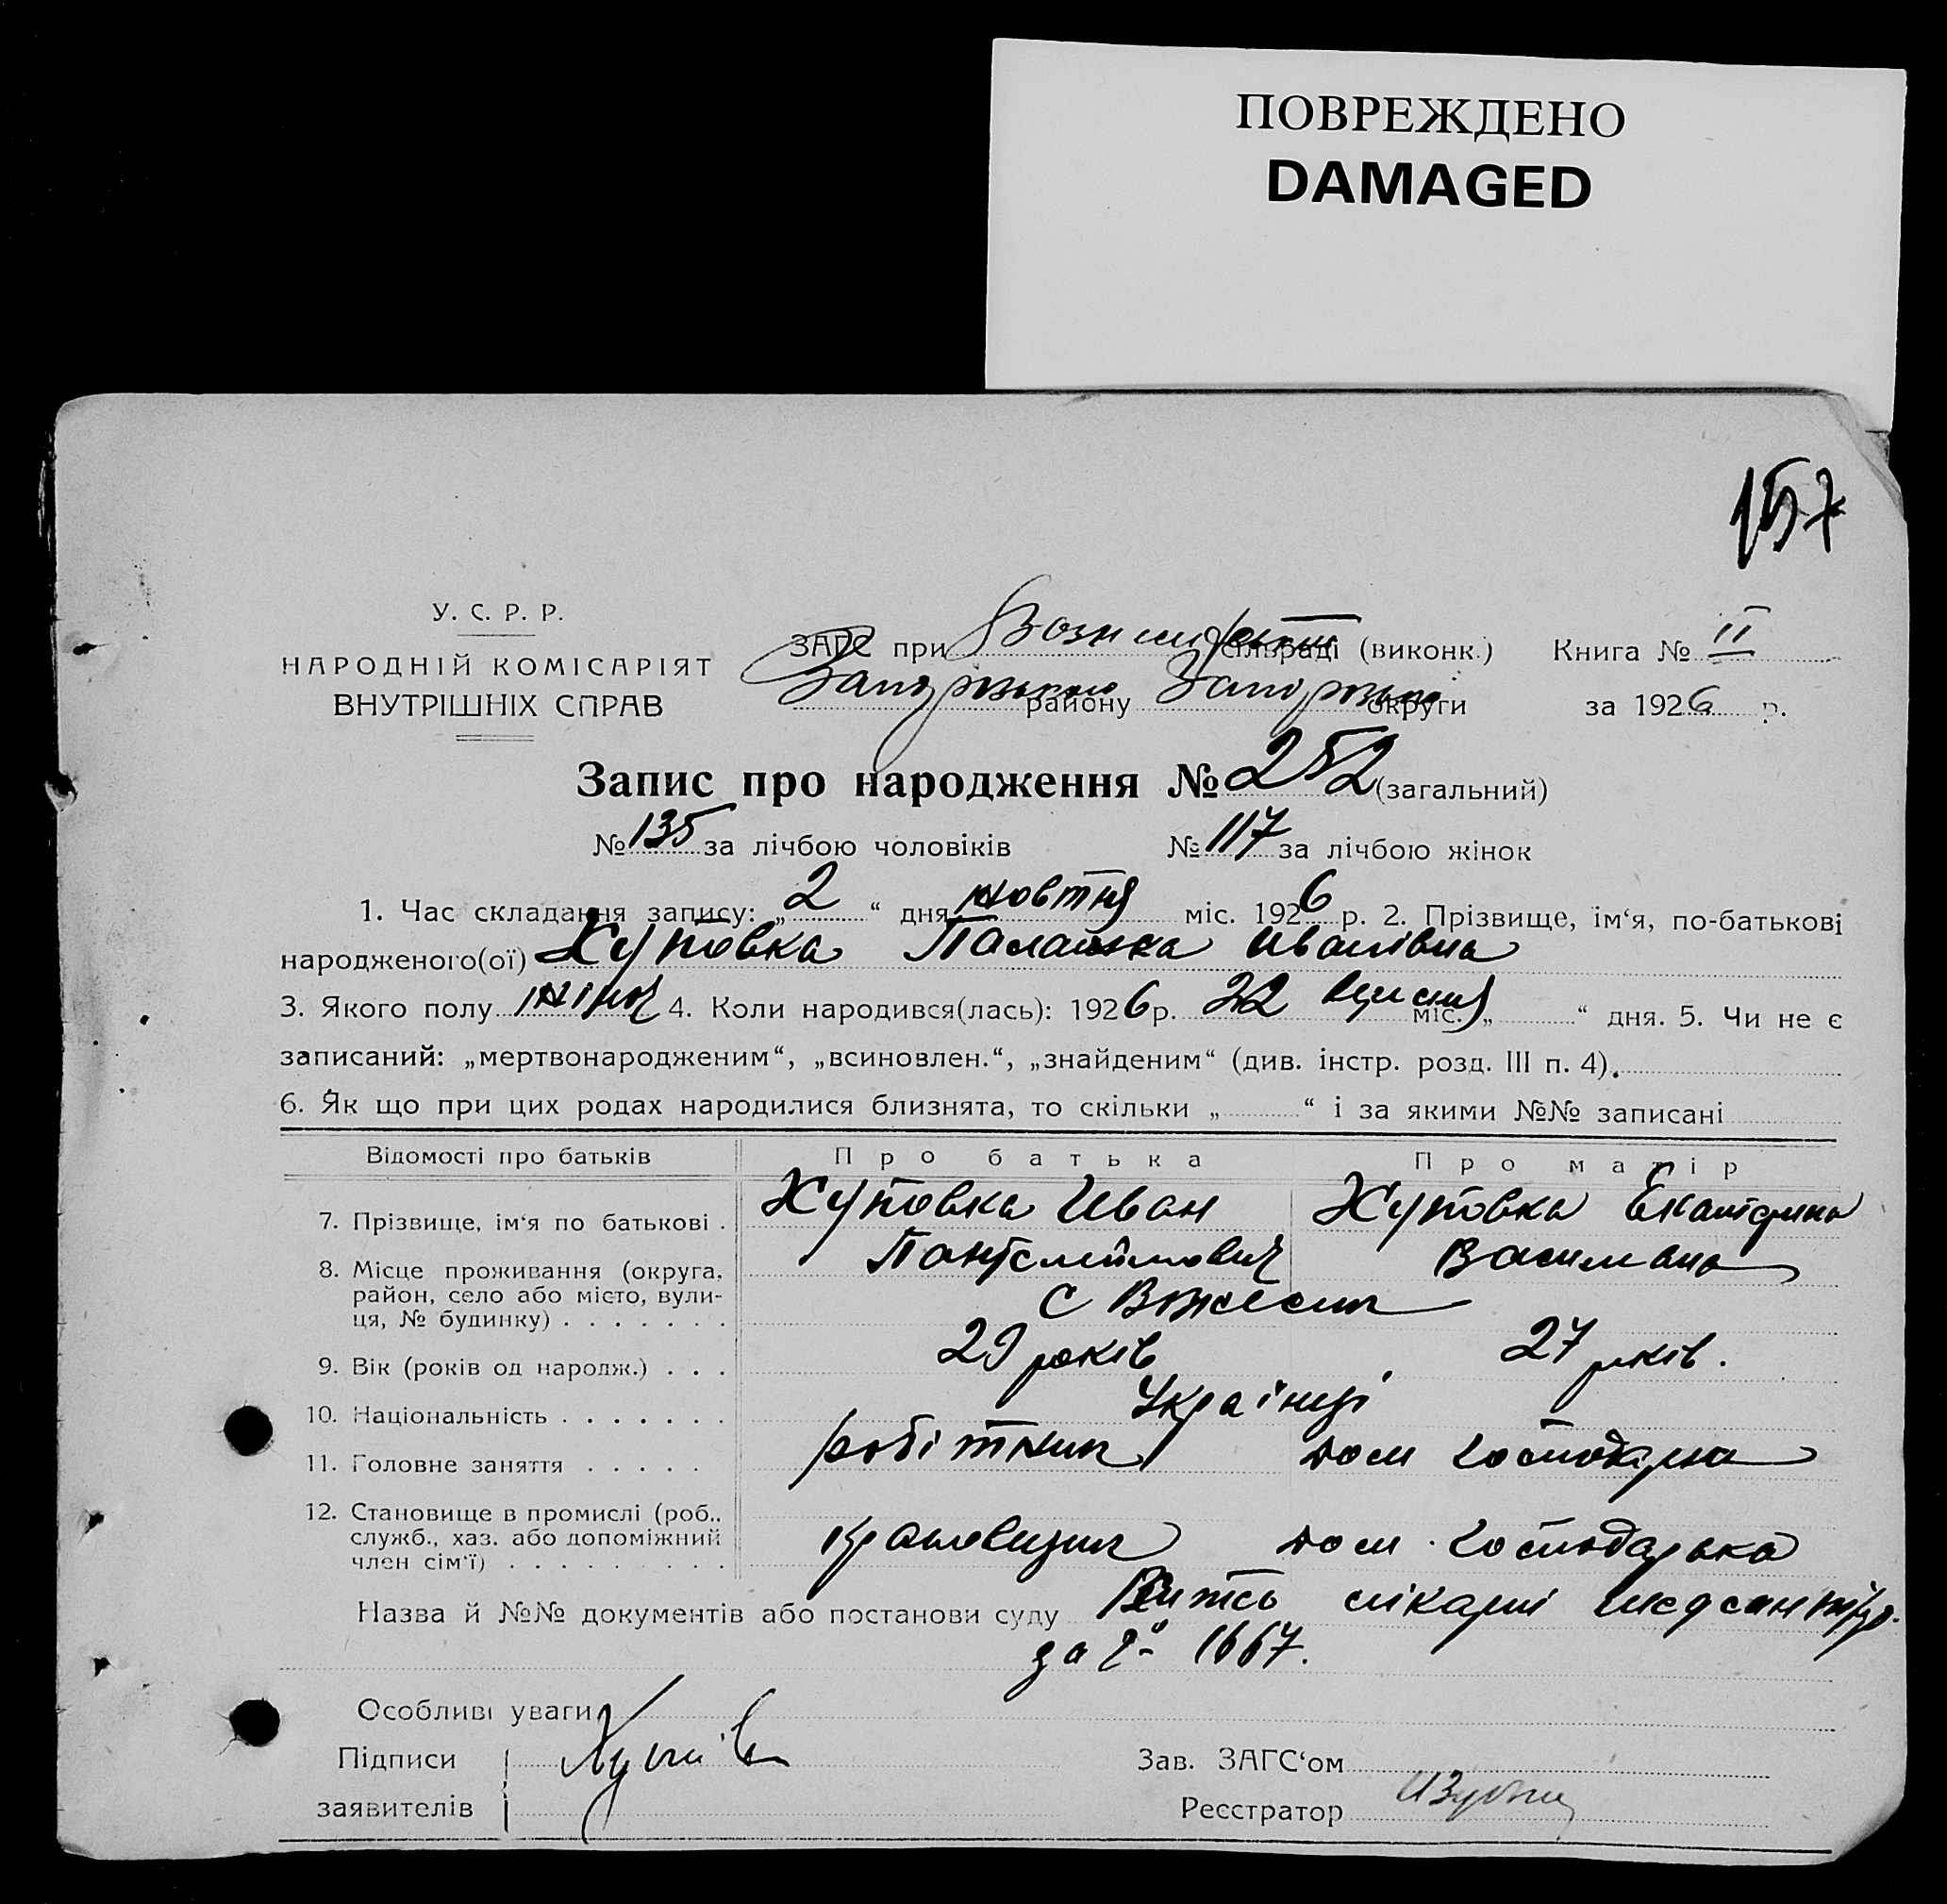 ПОВРЕЖДЕНО
DAMAGED
157
У. С. Р. Р.
НАРОДНІЙ КОМІСАРІЯТ
ВНУТРІШНІХ СПРАВ
ЗАГС при сільраді (виконк.) Книга № II
району округи за 1926 р.
Запис про народження № 252 (загальний)
№ 135 за лічбою чоловіків № 117 за лічбою жінок
1. Час складання запису: „ 2 “ дня жовтня міс. 1926 р. 2. Прізвище, ім‘я, по-батькові
народженого(ої) Хутовка Палажка Иванівна
3. Якого полу жіноч 4. Коли народився(лась): 1926 р. 22 вересня міс. „ “ дня. 5. Чи не є
записаний: „мертвонародженим“, „всиновлен.“, „знайденим“ (див. інстр. розд. III п. 4).
6. Як що при цих родах народилися близнята, то скільки „ “ і за якими №№ записані
Відомості про батьків Про батька Про матір
7. Прізвище, ім‘я по батькові . Хутовка Иван Хутовка Екатерина
Пантелеймович
8. Місце проживання (округа,
район, село або місто, вули-
ця, № будинку) . . . . . . .
9. Вік (років од народж.) . . . 29 років 27 років.
10. Національність . . . . . . . Українці
11. Головне заняття . . . . . робітник дом господарка
12. Становище в промислі (роб..
служб., хаз. або допоміжний
член сім‘ї) . . . . . . . . . дом. господарька
Назва й №№ документів або постанови суду лікарні
за № 1667.
Особливі уваги
Підписи
заявителів
Зав. ЗАГС‘ом
Реєстратор